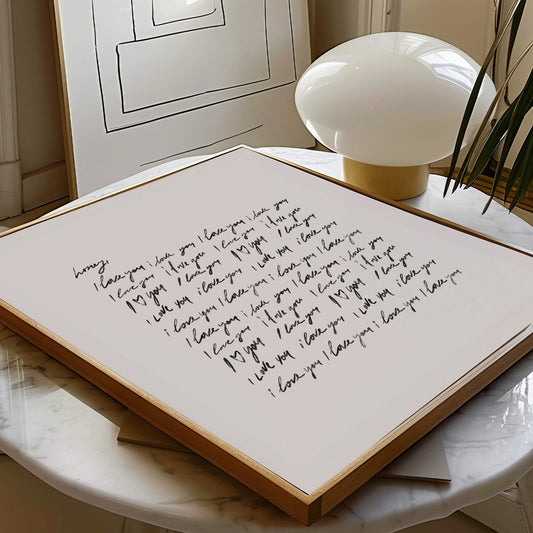 honey,
I love you i love you I love you i love you
I love you I love you I love you I love you
I ♡ you I love you I ♡ you I love you
I LOVE YOU i love you I LOVE YOU i love you
i love you I love you i love you I love you
I love you i love you I love you i love you
I love you I love you I love you I love you
I ♡ you I love you I ♡ you I love you
I LOVE YOU i love you I LOVE YOU i love you
i love you I love you i love you I love you